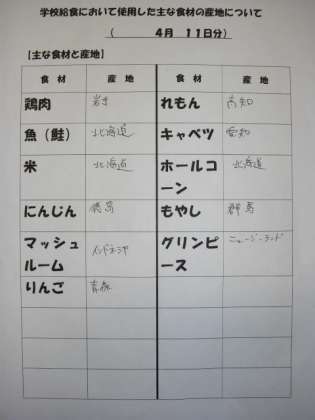 学校給食において使用した主な食材の産地について
( 4月 11日分)
【主な食材と産地】
食 材 産 地 食 材 産 地
鶏肉 岩手 れもん 高知
魚(鮭) 北海道 キャベツ 愛知
米 北海道 ホールコーン 北海道
にんじん 徳島 もやし 群馬
マッシュルーム インドネシア グリンピース ニュージーランド
りんご 青森